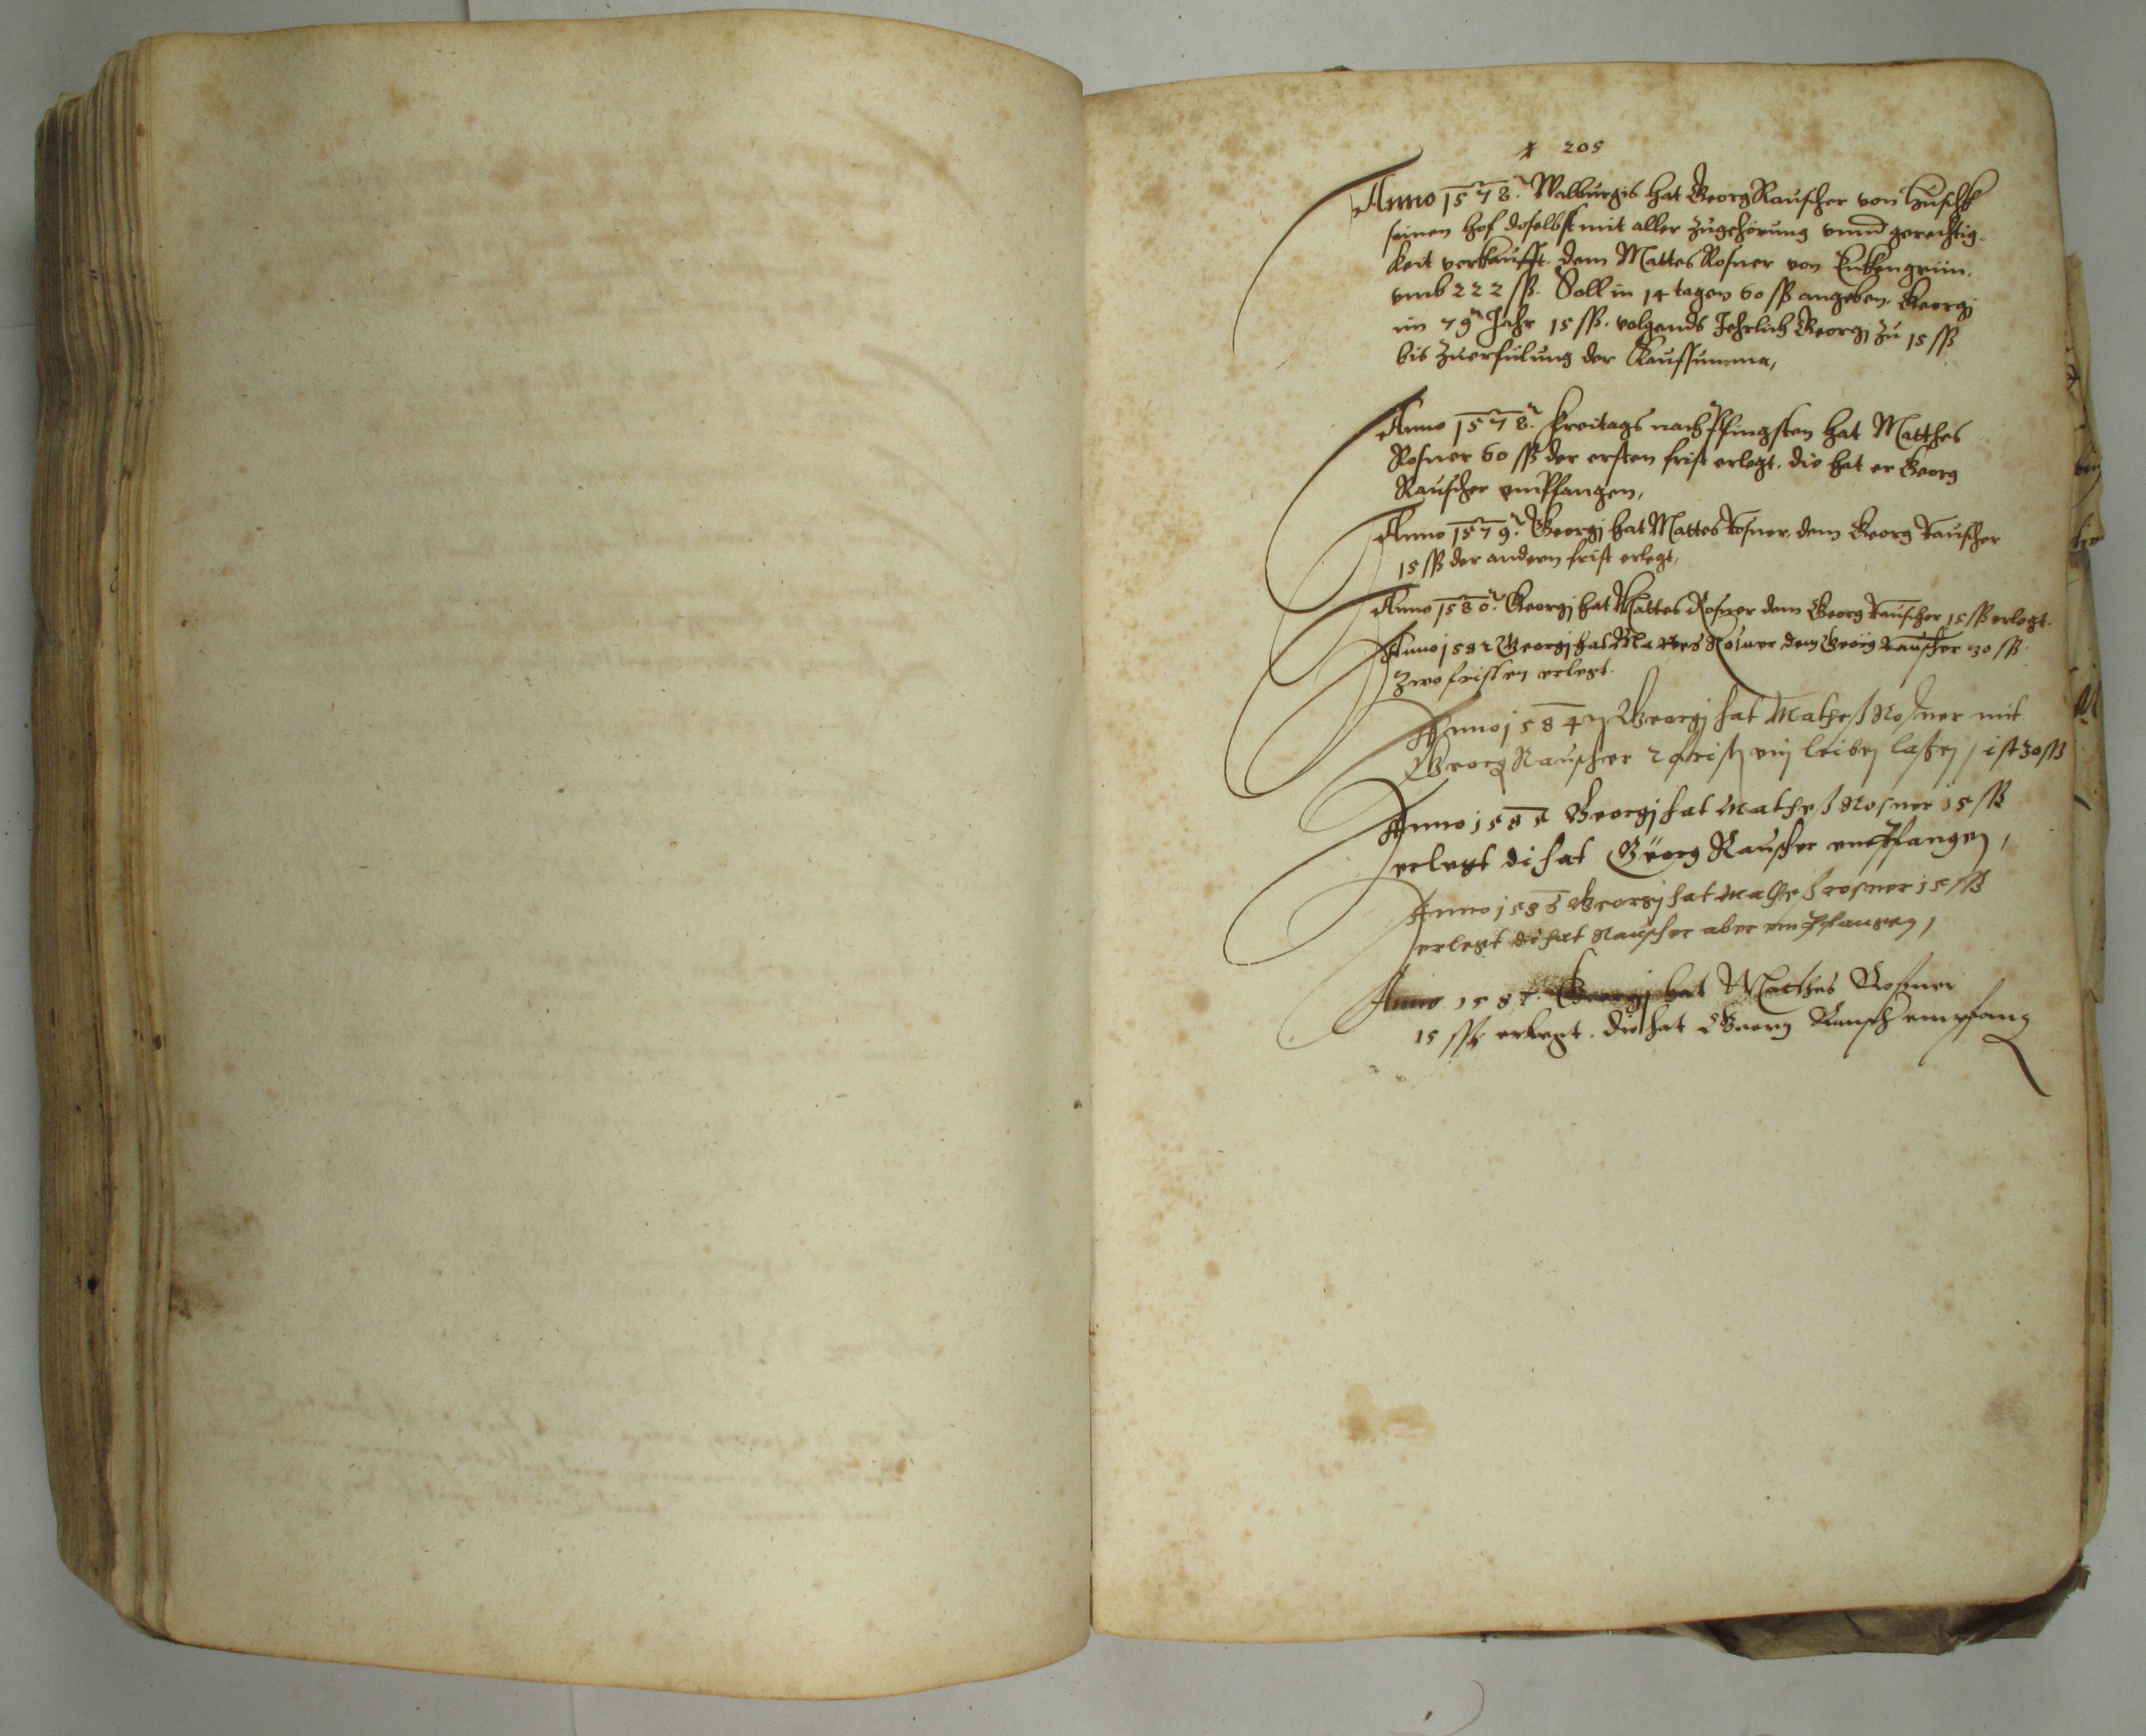 205
Anno 1578. Walburgis hat Georg Rauscher von
seinen hof doselbst mit aller zugehorung vnnd gerechtig-
keit verkaufft. dem Mattes Rosner von Kukengrün.
vmb 222 ßß. Soll in 14 tagen 60 ßß angeben. Georgj
im 79 Jahr 15 ßß. volgends Jehrlich Georgj zu 15 ßß
bis zuerfulung der Kaufsumma,
Anno 1578. freitags nach Pfingsten hat Matthes
Rosner 60 ßß der ersten frist erlegt. die hat er Georg
Rauscher empfangen,
Anno 1579. Georgj hat Mattes rosner, dem Georg rauscher
15 ßß der andern frist erlegt,
Anno 1580. Georgj hat Mattes Rosner dem Georg rauscher 15 ßß erlegt.
Anno 1582 Georgj hat Mattes Rosner dem Georg rauscher 30 ßß
zwo fristen erlegt.
Anno 1584 Georgj hat Matheß Rosner mit
Georg Rauscher 2 frist laßen, ist 30 ßß
Anno 1585 Georgj hat Matheß Rosner 15 ßß
erlegt di hat Georg Rauscher empfangen,
Anno 1586 Georgj hat Matheß rosner 15 ßß
erlegt di hat Rauscher aber empfangen,
Anno 1587. Georgj hat Matthes Rosner
15 ßß erlegt. die hat Georg Rausch empfang